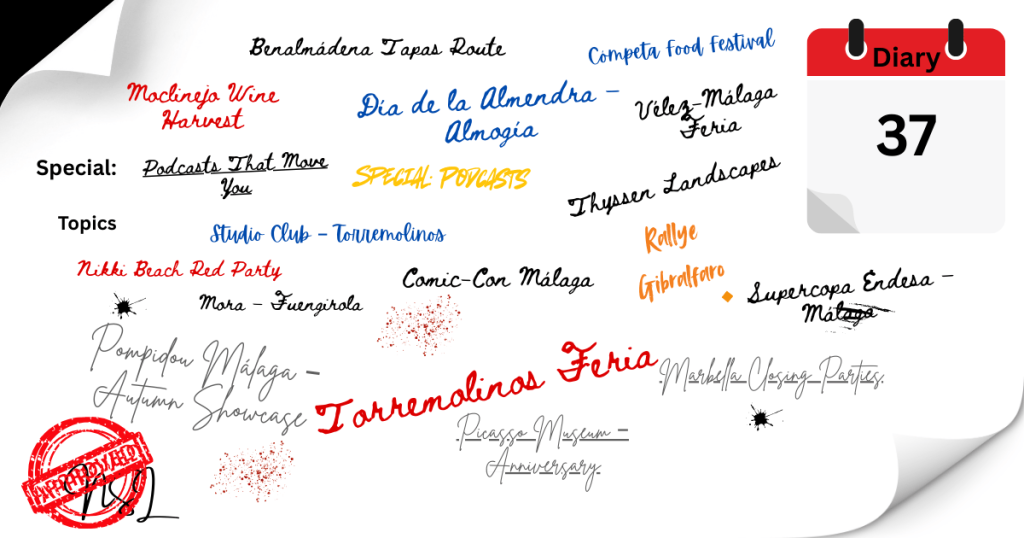 Benalmádena Tapas Route
Competa Food Festival
Diary
37
Moclinejo Wine
Harvest
Día de la Almendra –
Almogía
Vélez-Málaga
Feria
Special:
Podcasts That Move
You
Special: Podcasts
Thyssen Landscapes
Topics
Studio Club – Torremolinos
Rallye
Gibralfaro
Nikki Beach Red Party
Comic-Con Málaga
Supercopa Endesa –
Málaga
Mora – Fuengirola
Pompidou Málaga –
Autumn Showcase
Torremolinos Feria
Marbella Closing Parties
Picasso Museum –
Anniversary
APPROVED